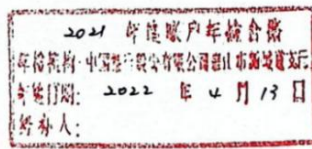 2021 年度账户年检合格
年检机构:中国 股份有限公司 市 支行
年检日期: 2022 年 4 月 13 日
经办人: